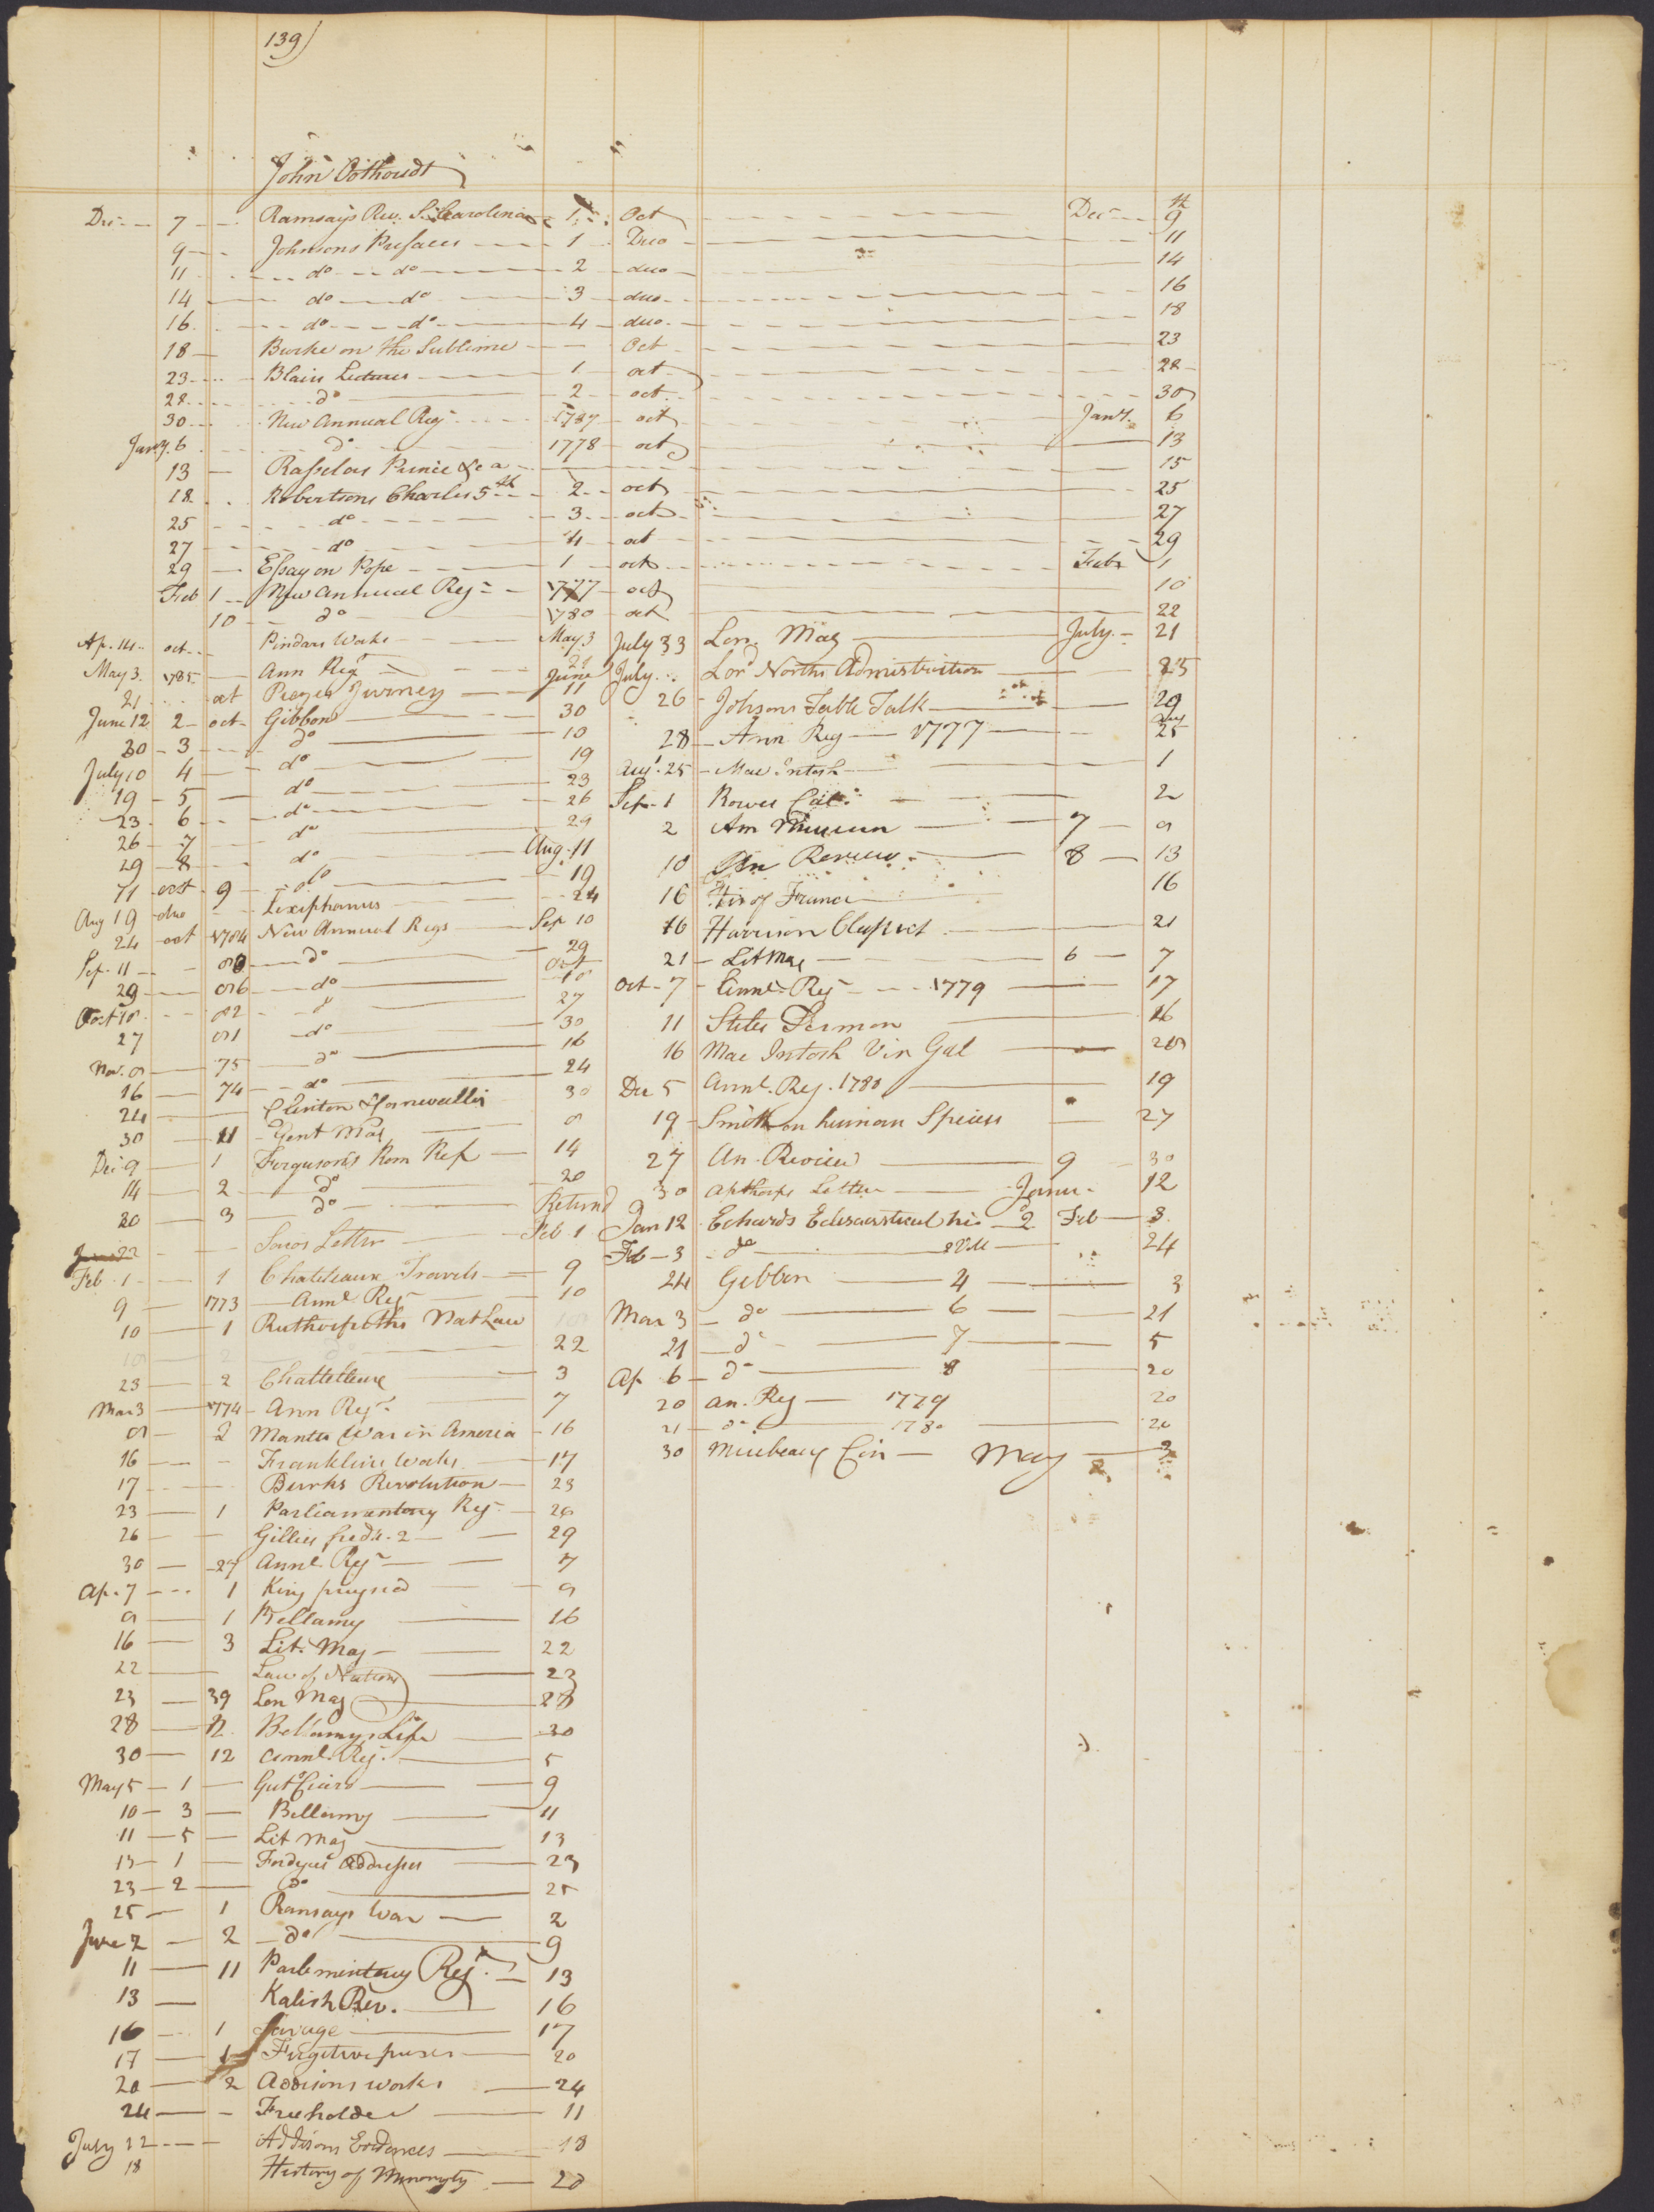 139
John Oothoudt
Dec 7 Ramsay's Rev. S. Carolina 1 Oct Dec 9th
9 Johnsons Prefaces 1 Duo 11
11 do do 2 duo 14
14 do do 3 duo 16
16 do do 4 duo 18
18 Burke on the Sublime Oct 23
23 Blairs Lectures 1 oct 28
28 do 2 oct 30
30 New Annual Reg 1787 oct Jany. 6
Jany. 6 do 1778 oct 13
13 Rasselas Prince &c a 15
18 Robertsons Charles 5th 2 oct 25
25 do 3 oct 27
27 do 4 oct 29
29 Essay on Pope 1 oct Feb 1
Feb 1 New Annual Reg 1777 oct 10
10 do 1780 oct 22
Ap. 14 oct Pindars Works May 3
May 3 1785 Ann Reg 21
21 oct Journey June 11
June 12 2 oct Gibbon 30
30 3 do 10
July 10 4 do 19
19 5 do 23
23 6 do 26
26 7 do 29
29 8 do Aug. 11
11 oct 9 do 19
Aug 19 duo Lexiphanes 24
24 oct 1784 New Annual Regs Sep 10
Sep. 11 do 29
29 86 do Oct 18
Oct 18 82 do 27
27 81 do 30
Nov. 8 75 do 16
16 74 do 24
24 Clinton & Cornwallis 30
30 11 Gent Mag 8
Dec 9 1 Fergusons Rom Rep 14
14 2 do 20
20 3 do Returnd
Jan 22 Letter Feb 1
Feb. 1 1 Chatteleaux Travels 9
9 1773 Annl. Reg 10
10 1 Rutherfoths Nat Law
22
23 2 Chatteleux 3
Mar 3 1774 Ann Reg. 7
8 2 Mantes War in America 16
16 Franklins Works 17
17 Burks Revolution 23
23 1 Parliamentary Reg 26
26 Gillies fredk. 2 29
30 27 Annl. Reg 7
Ap. 7 1 King 8
8 1 Bellamy 16
16 3 Lit. Mag 22
22 Law of Nations 23
23 39 Lon Mag 28
28 2 Bellamys Life 30
30 12 Annl. Reg. 5
May 5 1 9
10 3 Bellamy 11
11 5 Lit Mag 13
13 1 Fordyces Addresses 23
23 2 do 25
25 1 Ramsays War 2
June 2 2 do 9
11 11 Parlementary Reg. 13
13 Kalish Rev. 16
16 1 Savage 17
17 1 Fugitive pieces 20
20 2 Addisons works 24
24 Freeholder 11
July 12 Addisons Evidences 18
18 History of Minority 20
July 3 33 Lon. Mag July 21
July Lord Norths Administration 25
26 Johsons Table Talk 29
28 Ann Reg 1777 Aug 25
Aug. 25 Mac Intosh 1
Sep. 1 Rowes Cat. 2
2 Am Museum 7 9
10 An Review 8 13
16 His of France 16
16 Harrison 21
21 Lit Mag 6 7
Oct 7 Annl. Reg 1779 17
11 Stiles Sermon 16
16 Mac Intosh Vin Gal 28
Dec 5 Annl. Reg. 1780 19
19 Smith on human Species 27
27 An. Review 9 30
30 Apthorps Letter Janu. 12
Jan 12 Echards Eclesaestical his 2 Feb 3
Feb 3 do 2 Vol 24
24 Gibbon 4 3
Mar 3 do 6 21
21 do 7 5
Ap 6 do 8 20
20 an. Reg 1779 20
21 do 1780
30 Mirebeau Cin May 3